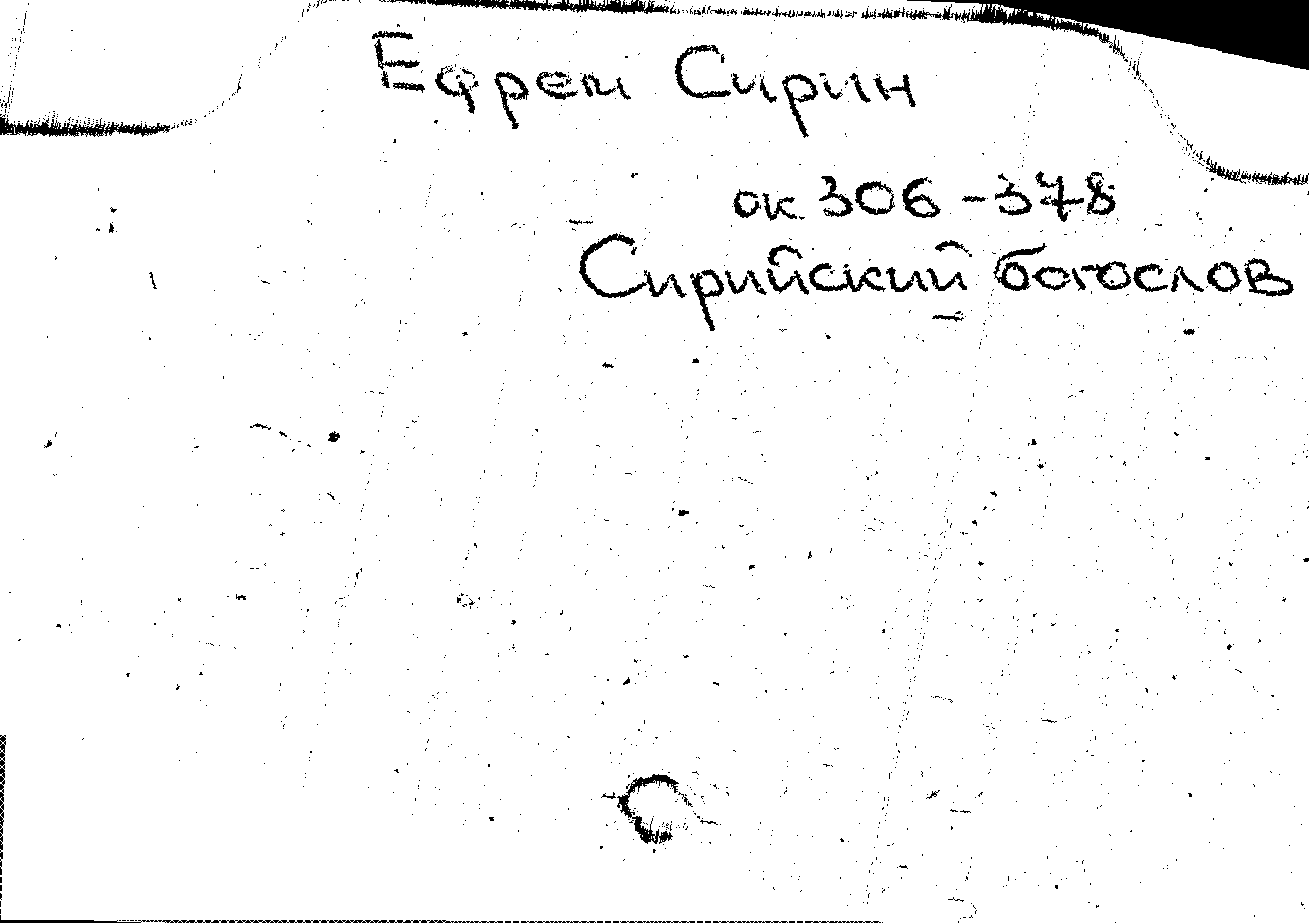 Ефрем Сирин
ок 306 - 378
Сирийский богослов